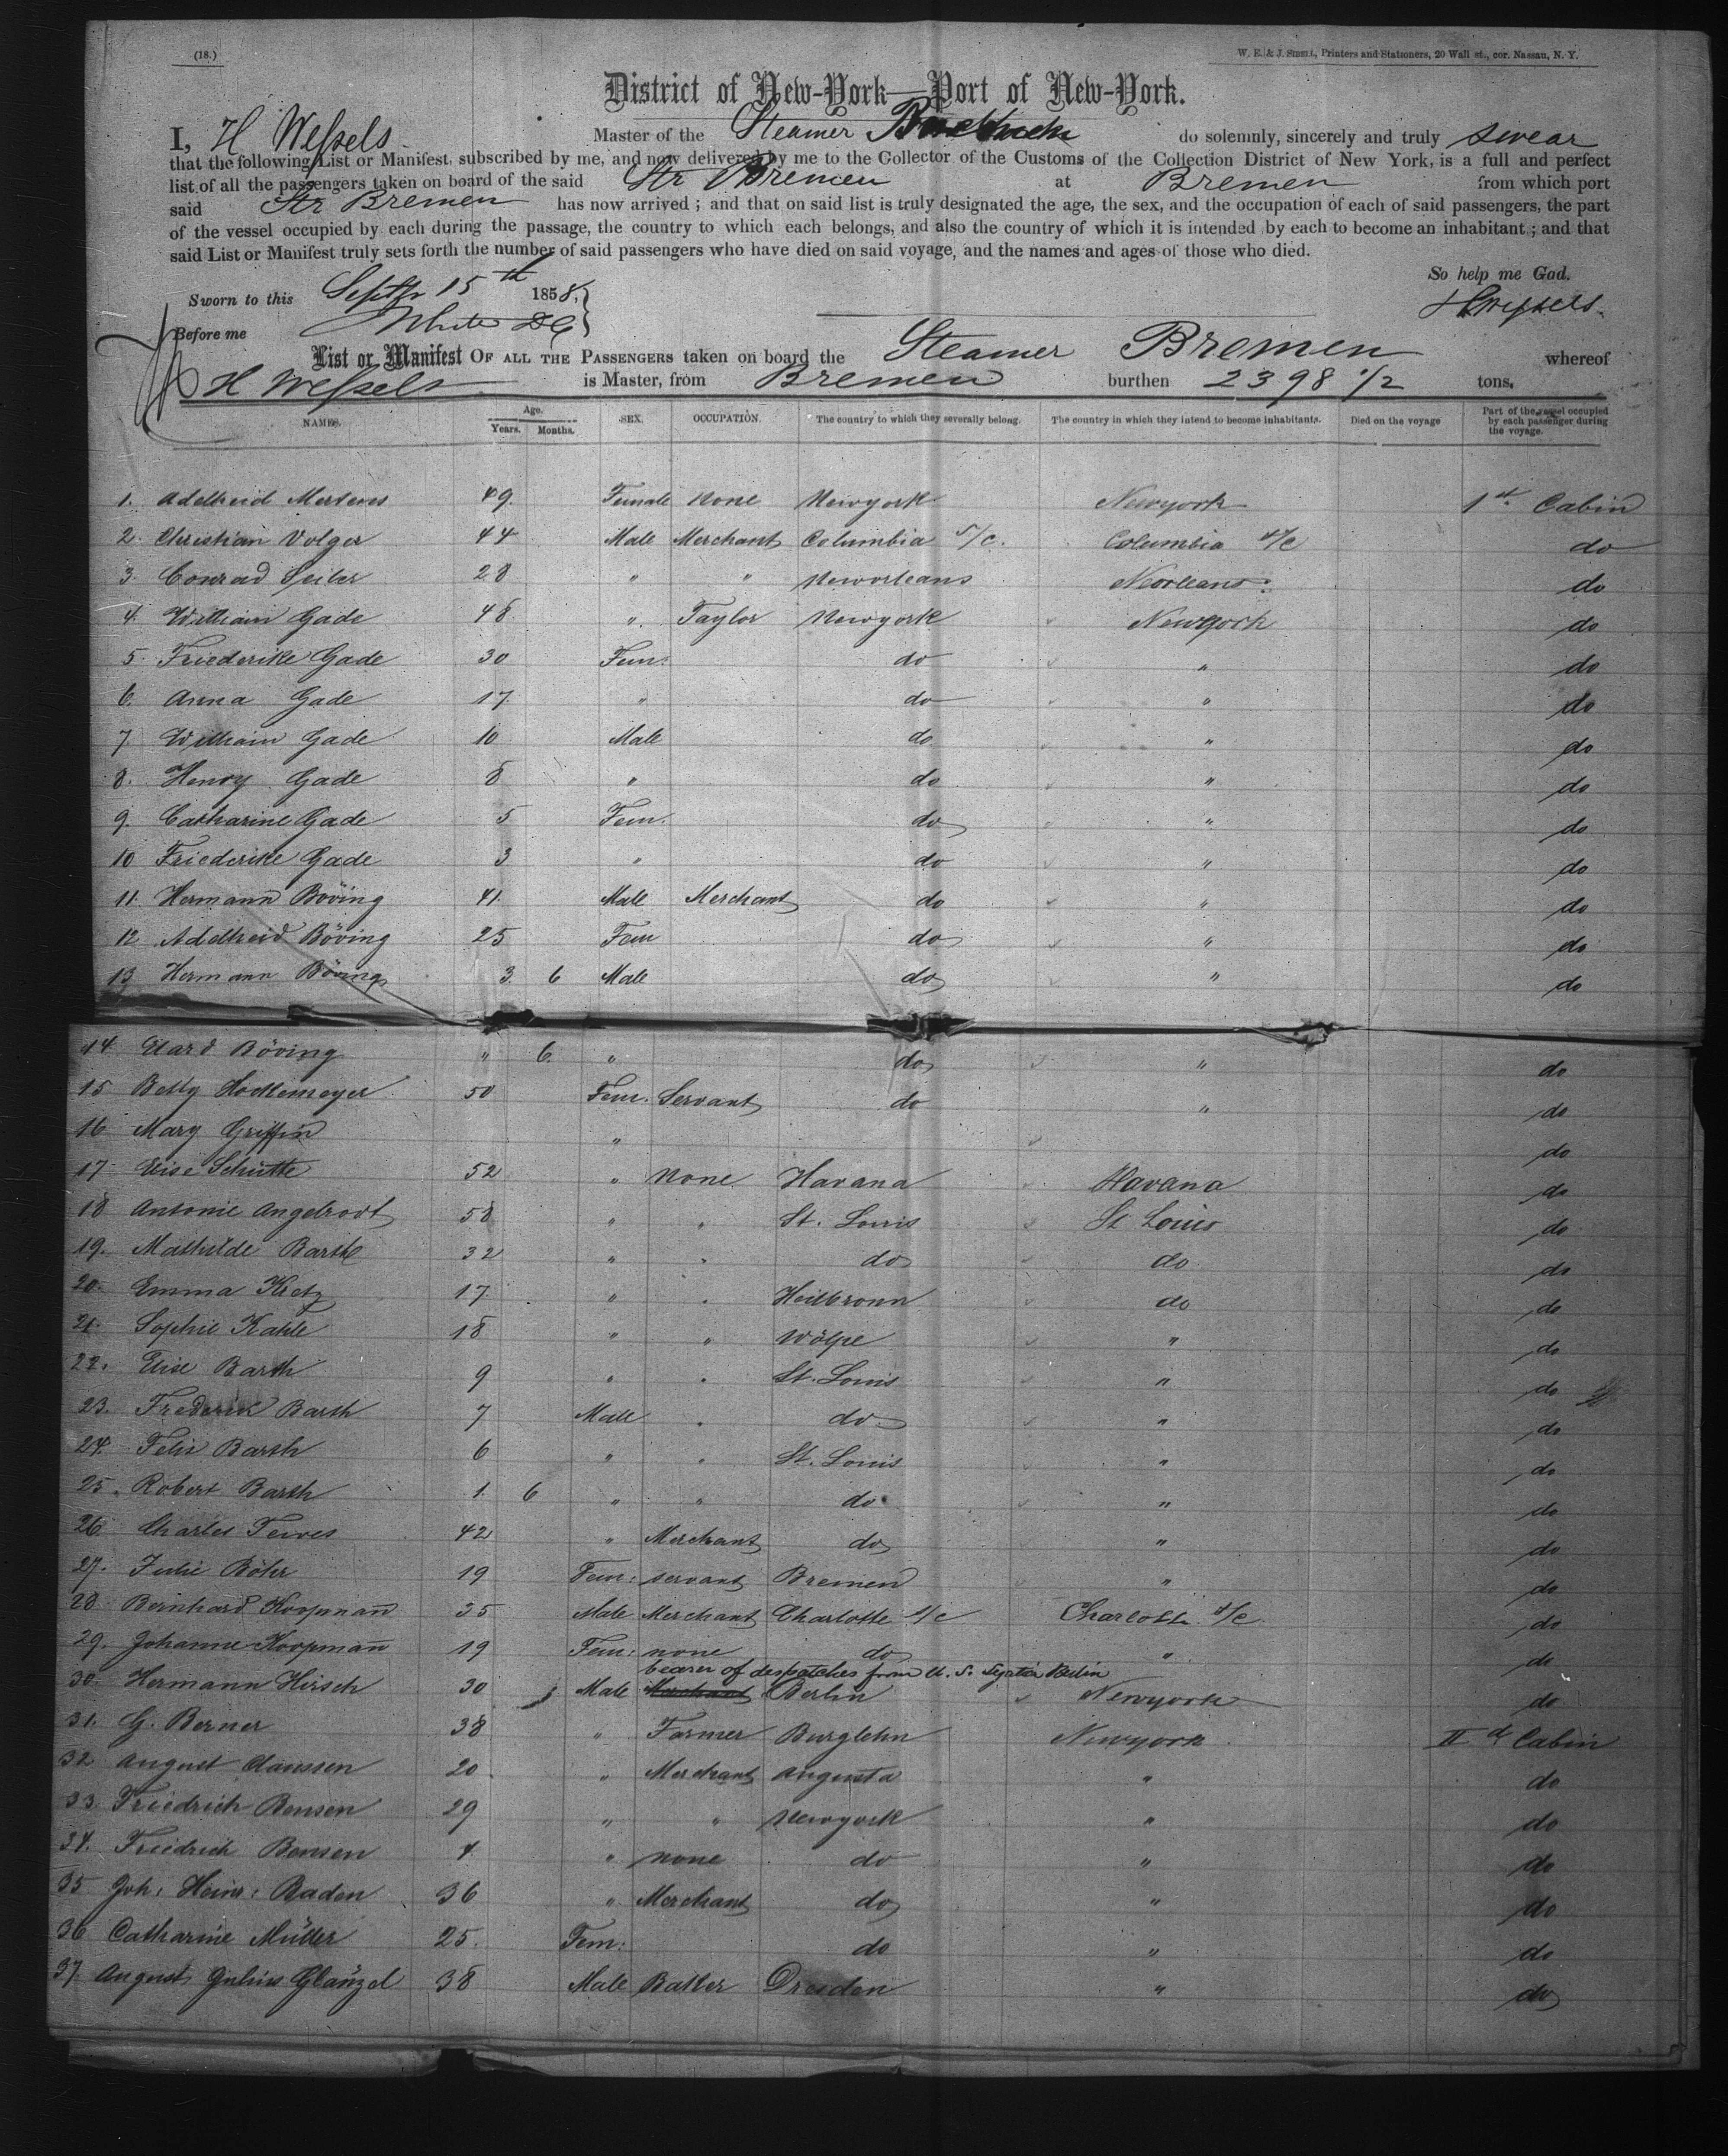 (18.)
W. E. & J. SIBELL, Printers and Stationers, 20 Wall st., cor. Nassau, N. Y.
District of New-York—Port of New-York.
I, H Weſsels Master of the Steamer do solemnly, sincerely and truly swear
that the following List or Manifest, subscribed by me, and now delivered by me to the Collector of the Customs of the Collection District of New York, is a full and perfect
list of all the passengers taken on board of the said Str Bremen at Bremen from which port
said Str Bremen has now arrived ; and that on said list is truly designated the age, the sex, and the occupation of each of said passengers, the part
of the vessel occupied by each during the passage, the country to which each belongs, and also the country of which it is intended by each to become an inhabitant ; and that
said List or Manifest truly sets forth the number of said passengers who have died on said voyage, and the names and ages of those who died.
So help me God.
Sworn to this Septbr 15th 1858, HWeſsels.
Before me White DC
List or Manifest OF ALL THE PASSENGERS taken on board the Steamer Bremen whereof
H Weſsels is Master, from Bremen burthen 2398 1/2 tons.
NAMES. Age. Years. Months. SEX. OCCUPATION. The country to which they severally belong. The country in which they intend to become inhabitants. Died on the voyage Part of the vessel occupied by each passenger during the voyage.
1. Adelheid Mertens 49 Female None Newyork Newyork 1st Cabin
2. Christian Volger 44 Male Merchant Columbia S/C. Columbia S/C do
3. Conrad Seiler 28 " " Neworleans Neorleans do
4. William Gade 48 " Taylor Newyork Newyork do
5. Friederike Gade 30 Fem: do " do
6. Anna Gade 17 " do " do
7. William Gade 10 Male do " do
8. Henry Gade 8 " do " do
9. Catharine Gade 5 Fem. do " do
10 Friederike Gade 3 " do " do
11. Hermann Böving 41. Male Merchant do " do
12 Adelheid Böving 25 Fem do " do
13 Hermann Böving 3. 6 Male do " do
14 Böving " 6. " do " do
15 Betty 50 Fem. Servant do " do
16 Mary Griffin " do
17 Elise Schütte 52 " None Havana Havana do
18 Antonie Angelrodt 58 " " St. Louis St Louis do
19. Mathilde Barth 32 " " do do do
20. Emma 17 " " Heilbronn do do
21. Sophie Kahle 18 " " Wölpe " do
22. Elise Barth 9 " " St. Louis " do
23. Frederick Barth 7 Male " do " do
24. Felix Barth 6 " " St. Louis " do
25. Robert Barth 1. 6 " " do " do
26. Charles 42 " Merchant do " do
27. Julie Böhr 19 Fem: servant Bremen " do
28 Bernhard Koopmañ 35 Male Merchant Charlotte S/C Charlotte S/C do
29. Johanne Koopmañ 19 Fem: none do " do
bearer of despatches from U. S. Berlin
30. Hermann Hirsch 30 Male Merchant Berlin Newyork do
31. G. Berner 38 " Farmer Burglehn Newyork IId Cabin
32 August Claussen 20 " Merchant Augusta " do
33 Friedrich Bensen 29 " " Newyork " do
34. Friedrich Bensen 4 " none do " do
35 Joh: Heinr: Raden 36 " Merchant do " do
36 Catharine Müller 25. Fem: do " do
37. August Julius Glänzel 38 Male Baker Dresden " do